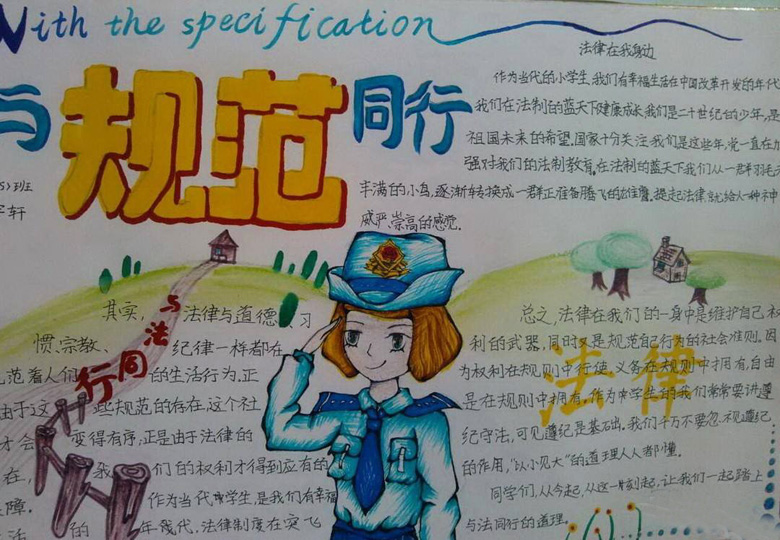 With the specification
与规范同行
法律在我身边
作为当代的小学生,我们有幸福生活在中国改革开发的年代
我们在法制的蓝天下健康成长,我们是二十世纪台的少年,是
祖国未来的希望,国家十分关注我们,是这些年,党一直在加
强对我们的法制教育。在法制的蓝天下我们从一群羽毛
丰满的小鸟,逐渐转换成一群正准备腾飞的雄鹰。提起法律就给人一种神
威严、崇高的感觉。
班
轩
其实,法律与道德、习
惯、宗教、纪律一样都在
范着人们的生活行为,正
由于这些规范的存在,这个社
才会变得有序,正是由于法律的
在,我们的权利才得到应有的
障。作为当代中学生,是我们有幸福
活的年代,法律制度在突飞
与法同行
总之,法律在我们的一身中是维护自己权
利的武器,同时又是规范自己行为的社会准则。因
为权利在规则中行使,义务在规则中拥有,自由
是在规则中拥有。作为中学生的我们常常要讲遵
纪守法,可见遵纪是基础。我们千万不要忽视遵纪
的作用,“以小见大”的道理人人都懂。
同学们,从今起,从这一刻起,让我们一起踏上
与法同行的道理。
法律